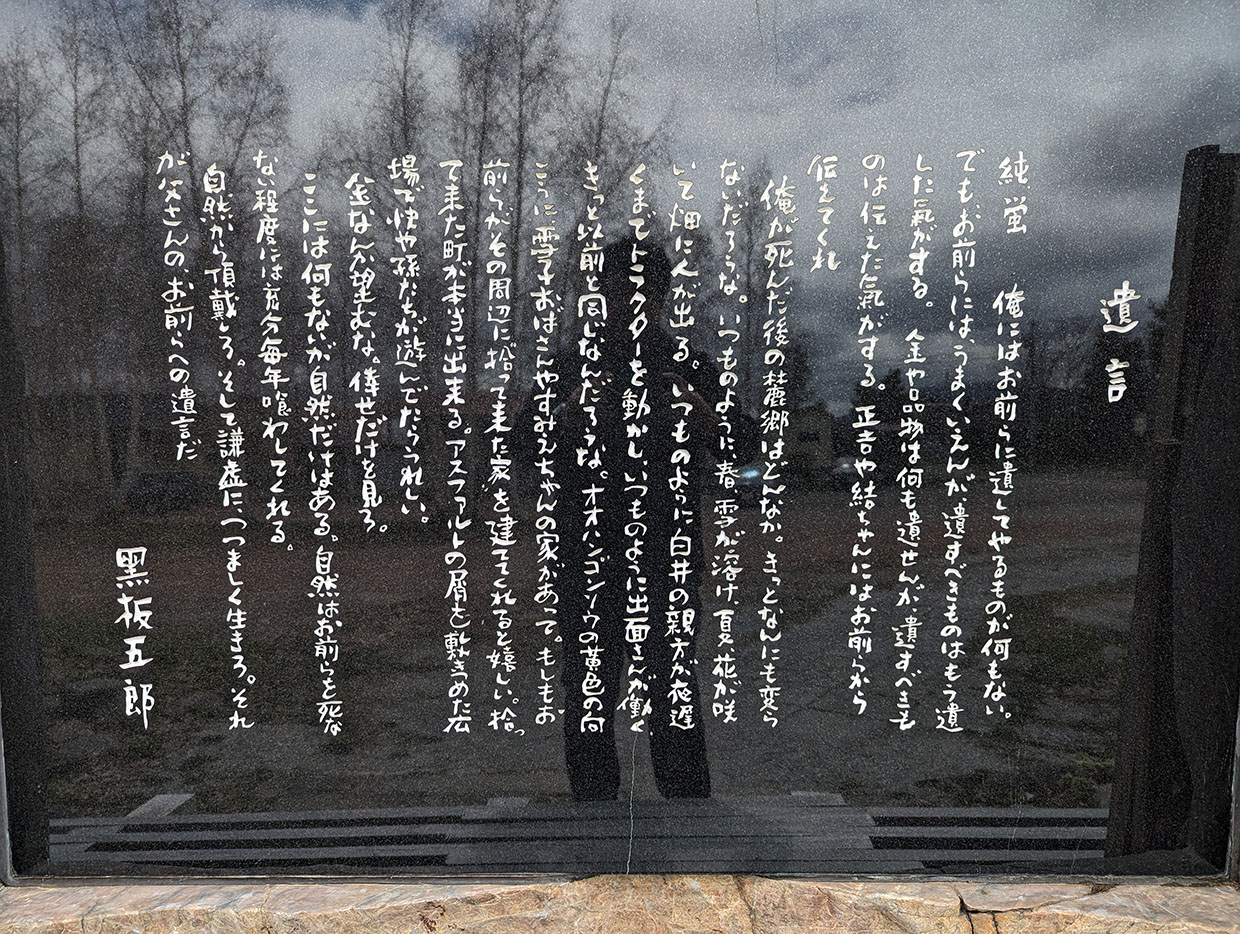 遺言
純、蛍　俺にはお前らに遺してやるものが何もない。
でも、お前らには、うまくいえんが、遺すべきものはもう遺
した氣がする。　金や品物は何も遺せんが、遺すべきも
のは伝えた氣がする。正吉や結ちゃんにはお前らから
伝えてくれ
俺が死んだ後の麓郷はどんなか。きっとなんにも変ら
ないだろうな。いつものように、春、雪が溶け、夏、花が咲
いて畑に人が出る。いつものように白井の親方が夜遅
くまでトラクターを動かし、いつものように出面さんが働く。
きっと以前と同じなんだろうな。オオハンゴンソウの黄色の向
こうに雪子おばさんやすみえちゃんの家があって。もしもお
前らがその周辺に拾って来た家を建ててくれると嬉しい。拾っ
て来た町が本当に出来る。アスファルトの屑を敷きつめた広
場で快や孫たちが遊んでたらうれしい。
金なんか望むな。倖せだけを見ろ。
ここには何もないが自然だけはある。自然はお前らを死な
ない程度には充分毎年喰わしてくれる。
自然から頂戴しろ。そして謙虚に、つつましく生きろ。それ
が父さんの、お前らへの遺言だ
黒板五郎